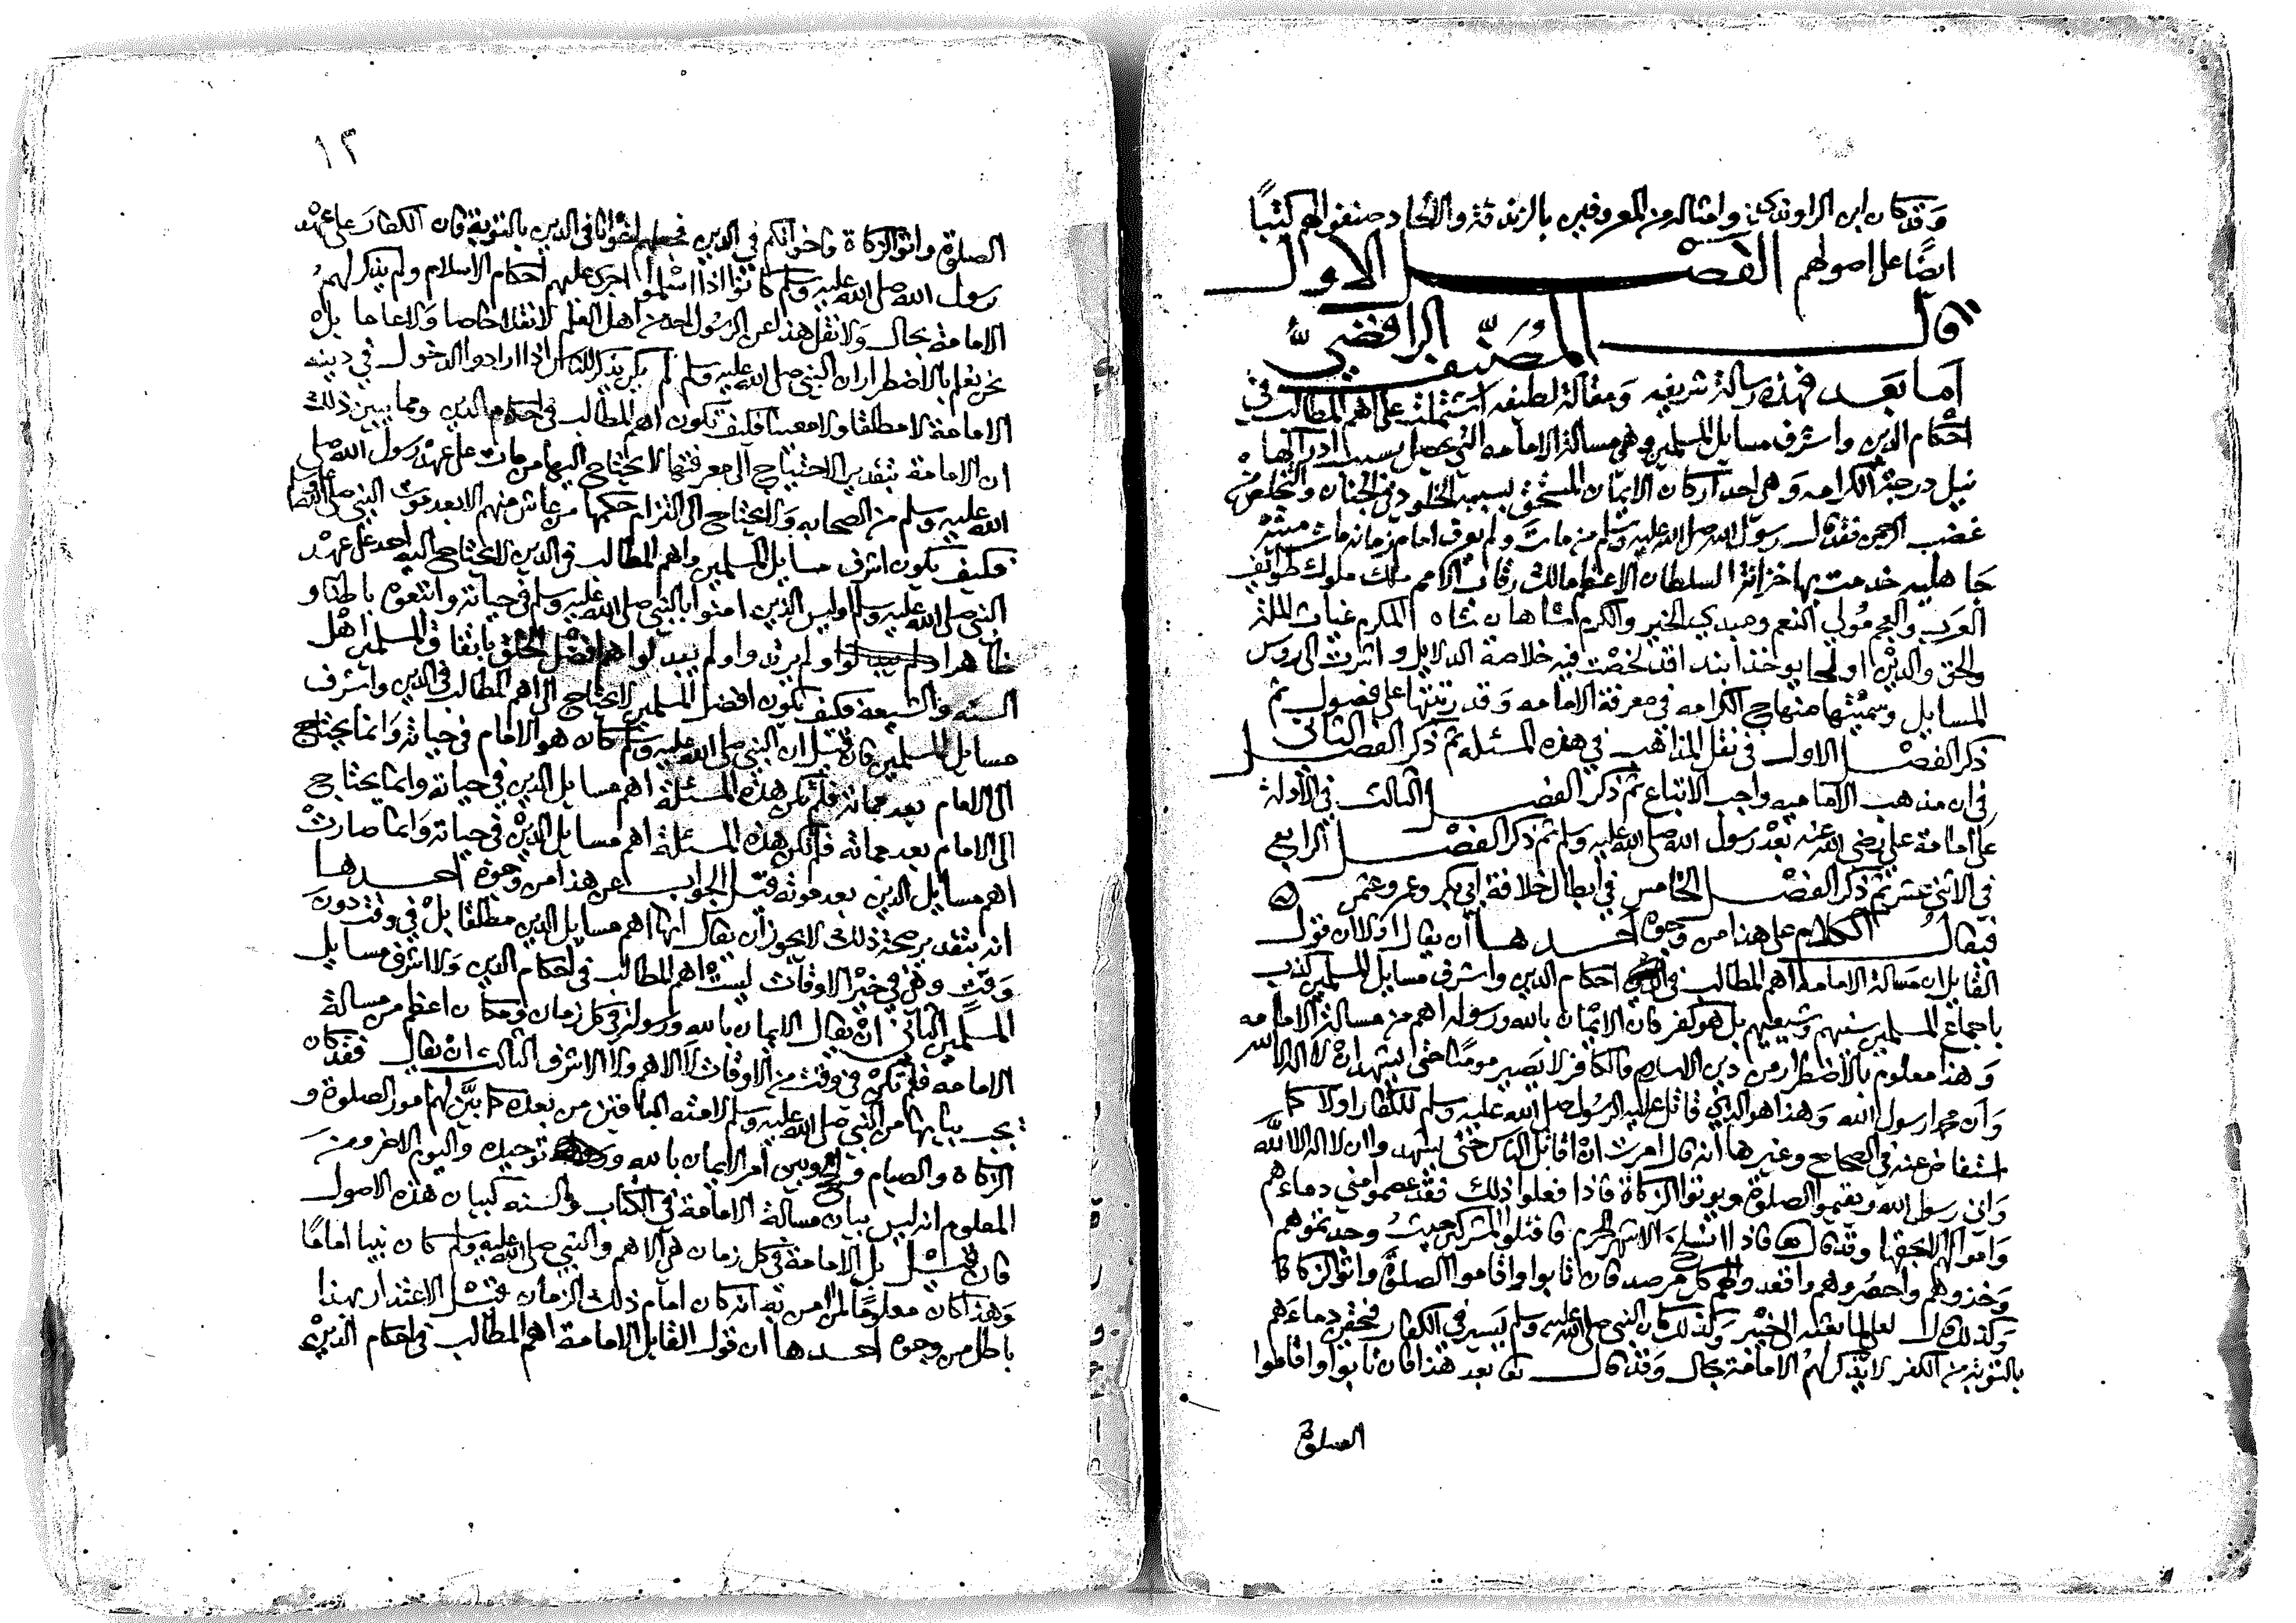 وقد كان ابن الراوندي وامثاله من المعروفين بالزندقة والالحاد صنفوا لهم كتبا
ايضا على اصولهم الفصل الاول
قال المصنف الرافضي
اما بعد فهذه رسالة شريفه ومقالة لطيفه اشتملت على اهم المطالب في
احكام الدين واشرف مسايل المسلمين وهي مسالة الامامه التي يحصل بسبب ادراكها
نيل درجة الكرامه وهي احد اركان الايمان المستحق بسببه الخلود في الجنان والتخلص من
غضب الرحمن فقد قال رسول الله صلى الله عليه وسلم من مات ولم يعرف امام زمانه مات ميتة
جاهليه خدمت بها خزانة السلطان الاعظم مالك رقاب الامم ملك ملوك طوايف
العرب والعجم مولي النعم ومبدي الخير والكرم شاهان شاه المكرم غياث الملة
والحق والدين اولجايو خذابنده قد لخصت فيه خلاصة الدلايل واشرت الى روس
المسايل وسميتها منهاج الكرامه في معرفة الامامه وقد رتبتها على فصول ثم
ذكر الفصل الاول في نقل المذاهب في هذه المسئله ثم ذكر الفصل الثاني
في ان مذهب الاماميه واجب الاتباع ثم ذكر الفصل الثالث في الادلة
على امامة علي رضي الله عنه بعد رسول الله صلى الله عليه وسلم ثم ذكر الفصل الرابع
في الاثنى عشر ثم ذكر الفصل الخامس في ابطال خلافة ابي بكر وعمر وعثمن
فيقال الكلام على هذا من وجوه احدها ان يقال اولا ان قول
القايل ان مسالة الامامة اهم المطالب في احكام الدين واشرف مسايل المسلمين كذب
باجماع المسلمين سنيهم وشيعيهم بل هو كفر فان الايمان بالله ورسوله اهم من مسالة الامامه
وهذا معلوم بالاضطرار من دين الاسلام فالكافر لا يصير مومنا حتى يشهد ان لا اله الا الله
وان محمدا رسول الله وهذا هو الذي قاتل عليه الرسول صلى الله عليه وسلم للكفار اولا كما
استفاض عنه في الصحاح وغيرها انه قال امرت ان اقاتل الناس حتى يشهدوا ان لا اله الا الله
واني رسول الله ويقيموا الصلوة ويوتوا الزكاة فاذا فعلوا ذلك فقد عصموا مني دماءهم
واموالهم الا بحقها وقد قال فاذا انسلخ الاشهر الحرم فاقتلوا المشركين حيث وجدتموهم
وخذوهم واحصروهم واقعدوا لهم كل مرصد فان تابوا واقاموا الصلوة واتوا الزكاة
وكذلك قال لعلي لما بعثه الى خيبر وكذلك كان النبي صلى الله عليه وسلم يسير في الكفار فيحقن دماءهم
بالتوبة من الكفر لا يذكر لهم الامامة بحال وقد قال بعد هذا فان تابوا واقاموا
الصلوة
١٢
الصلوة واتوا الزكاة فاخوانكم في الدين فجعلهم اخوانا في الدين بالتوبة فان الكفار على عهد
رسول الله صلى الله عليه وسلم كانوا اذا اسلموا اجرى عليهم احكام الاسلام ولم يذكر لهم
الامامة بحال ولا نقل هذا عن الرسول احد من اهل العلم لا نقلا خاصا ولا عاما بل
نحن نعلم بالاضطرار ان النبي صلى الله عليه وسلم لم يكن يذكر للناس اذا ارادوا الدخول في دينه
الامامة لا مطلقا ولا معينا فكيف تكون اهم المطالب في احكام الدين ومما يبين ذلك
ان الامامة بتقدير الاحتياج الى معرفتها لا يحتاج اليها من مات على عهد رسول الله صلى
الله عليه وسلم من الصحابه ولا يحتاج الى التزام حكمها من عاش منهم الا بعد موت النبي صلى الله عليه وسلم
فكيف يكون اشرف مسايل المسلمين واهم المطالب في الدين لا يحتاج اليه احد على عهد
النبي صلى الله عليه وسلم اوليس الذين امنوا بالنبي صلى الله عليه وسلم في حياته واتبعوه باطنا و
ظاهرا ولم يرتدوا ولم يبدلوا هم افضل الخلق باتفاق المسلمين اهل
السنه والشيعة فكيف يكون افضل المسلمين لا يحتاج الى اهم المطالب في الدين واشرف
مسايل المسلمين فان قيل ان النبي صلى الله عليه وسلم كان هو الامام في حياته وانما يحتاج
الى الامام بعد مماته فلم تكن هذه المسئلة اهم مسايل الدين في حياته وانما يحتاج
الى الامام بعد مماته فلم تكن هذه المسئلة اهم مسايل الدين في حياته وانما صارت
اهم مسايل الدين بعد موته قيل الجواب عن هذا من وجوه احدها
انه بتقدير صحة ذلك لا يجوز ان يقال انها اهم مسايل الدين مطلقا بل في وقت دون
وقت وهي في خير الاوقات ليست اهم المطالب في احكام الدين ولا اشرف مسايل
المسلمين الثاني ان يقال الايمان بالله ورسوله في كل زمان ومكان اعظم من مسالة
الامامه فلم تكن في وقت من الاوقات لا الاهم ولا الاشرف الثالث ان يقال فقد كان
يجب بيانها من النبي صلى الله عليه وسلم لامته الباقين من بعده كما بين لهم امور الصلوة و
الزكاة والصيام والحج وبين امر الايمان بالله وتوحيده واليوم الاخر ومن
المعلوم انه ليس بيان مسالة الامامة في الكتاب والسنه كبيان هذه الاصول
فان قيل بل الامامة في كل زمان هي الاهم والنبي صلى الله عليه وسلم كان نبيا اماما
وهذا كان معلوما لمن امن به انه كان امام ذلك الزمان قيل الاعتذار بهذا
باطل من وجوه احدها ان قول القايل الامامة اهم المطالب في احكام الدين